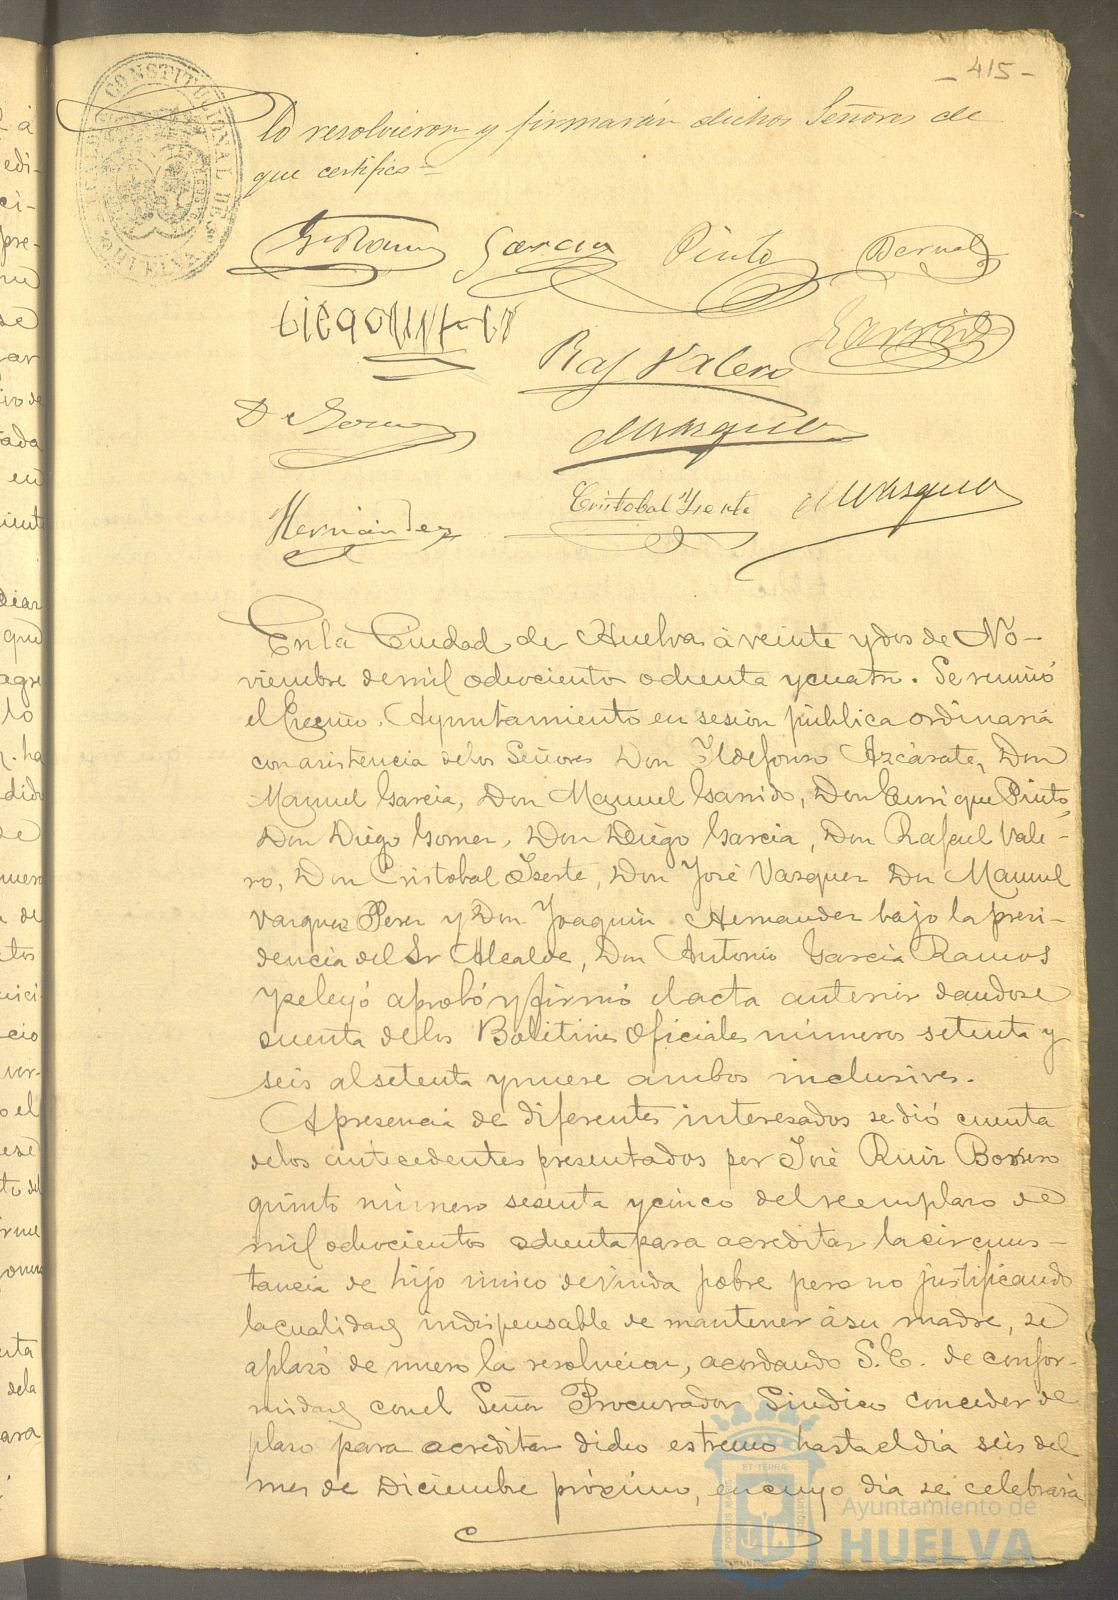 - 415 -
AYUNTAMIENTO CONSTITUCIONAL DE HUELVA
lo resolvieron y firmarán dichos Señores de
que certifico =
Gª Ramos García Pinto Bernal
Garrido
Raf Valero
D Gomez
Vazquez
Hernández Cristobal Yserte M Vasquez
En la Ciudad de Huelva á veinte y dos de No-
viembre de mil ochocientos ochenta y cuatro. Se reunió
el Excmo. Ayuntamiento en sesión pública ordinaria
con asistencia de los Señores Don Ildefonso Azcárate, Don
Manuel Garcia, Don Manuel Garrido, Don Enrique Pinto,
Don Diego Gomez, Don Diego Garcia, Don Rafael Vale-
ro, Don Cristobal Iserte, Don José Vazquez Don Manuel
Vazquez Perez y Don Joaquin Hernandez bajo la presi-
dencia del Sr Alcalde, Don Antonio Garcia Ramos
y se leyó aprobó y firmó el acta anterior dandose
cuenta de los Boletines oficiales números setenta y
seis al setenta y nueve ambos inclusives.
A presencia de diferentes interesados se dió cuenta
de los antecedentes presentados por José Ruiz Borrero
quinto número sesenta y cinco del reemplazo de
mil ochocientos ochenta para acreditar la circuns-
tancia de hijo único de viuda pobre pero no justificando
la cualidad indispensable de mantener á su madre, se
aplazó de nuevo la resolucion, acordando S.E. de confor-
midad con el Señor Procurador Sindico conceder de
plazo para acreditar dicho estremo hasta el dia seis del
mes de Diciembre próximo, en cuyo dia se celebrará
Ayuntamiento de
HUELVA